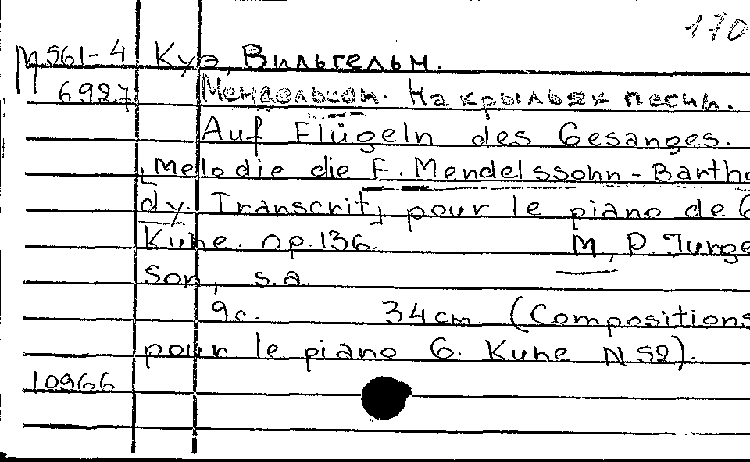 170
М561-4 Куэ, Вильгельм.
6927 Мендельсон. На крыльях песни.
Auf Flügeln des Gesanges.
Melodie die F. Mendelssohn-Bartho
dy. Transcrit, pour le piano de G
Kuhe. op.136. М., P. Jurge
son, s.a.
9c. 34cm (Compositions
pour le piano G. Kuhe N 52).
10966